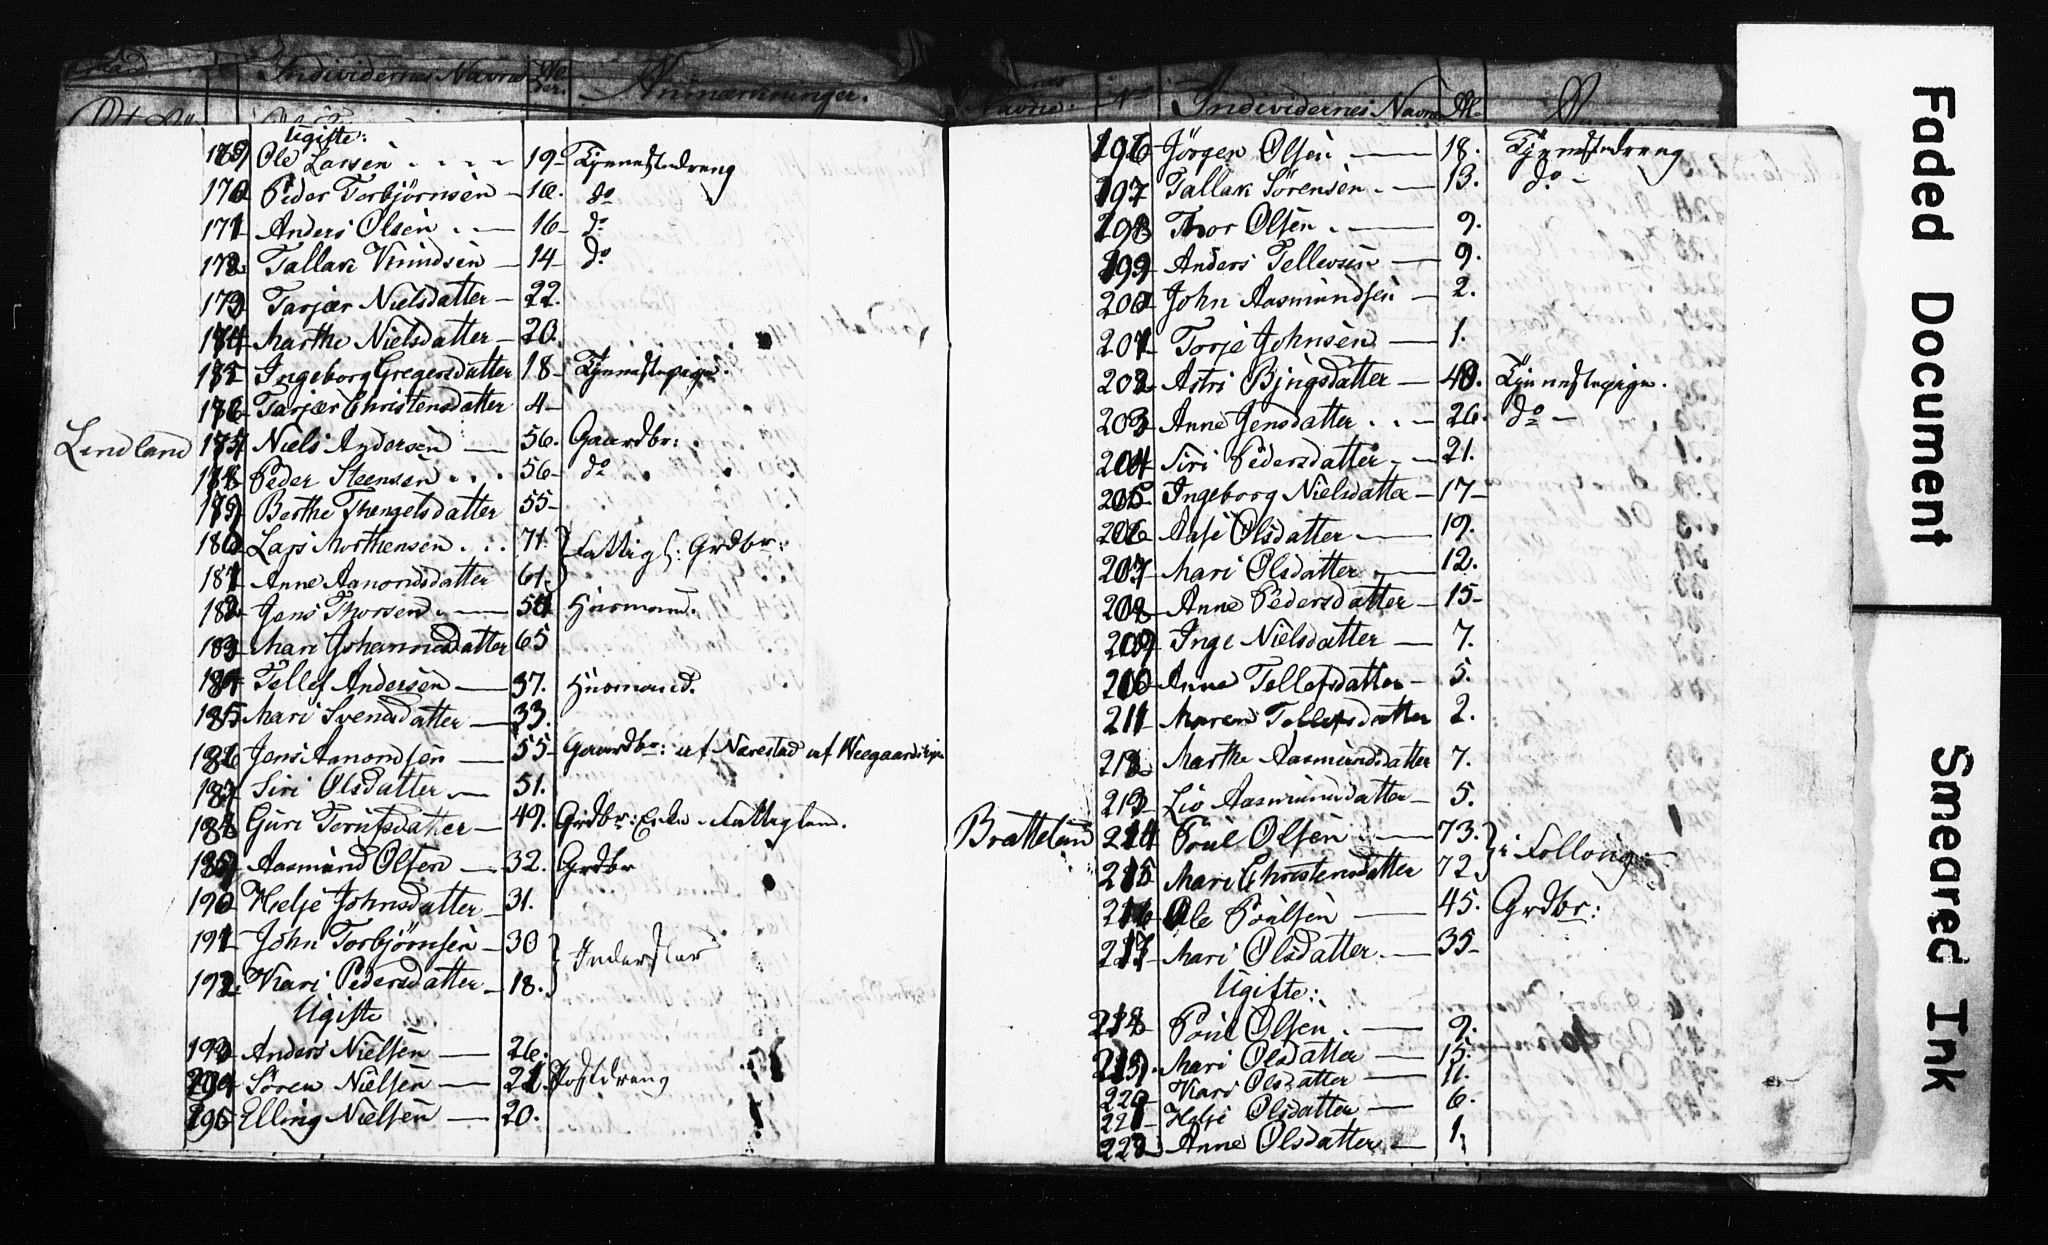 Individernes Navne Al-
der. Anmærkninger.
Ugifte:
169 Ole Larsen 19- Tjennestedreng
170 Peder Torbjörnsen - 18. do
171 Anders Olsen - 16- do
172 Tallak Knudsen - 14- do
173 Tarjær Nielsdatter - 22.
174 Marthe Nielsdatter - 20.
175 Ingeborg Gregersdatter 18- Tjennestepige.
176 Tarjær Christensdatter 4-
Lindland 177 Niels Andersen - 56. Gaardbr:
178 Peder Steensen 56- do
179 Berthe Thengelsdatter 55-
180 Lars Morthensen 71. Fattig f: Grdbr:
181 Anne Aanondsdatter 61.
182 Jens Thorsen - 54 Huusmand.
183 Mari Johannesdatter 65
184 Tellef Andersen - 37. Huusmand.
185 Mari Svendsdatter - 33.
186 Jens Aanondsen - 55- Gaardbr: af Nærestad af
187 Siri Olsdatter - 51.
188 Guri Terufsdatter - 49. Grdbr: Enke Fattiglem.
189 Aasmund Olsen - 32. Grdbr
190 Helje Johnsdatter - 31.
191 John Torbjörnsen - 30 Inderster
192 Kari Pedersdatter - 18.
Ugifte
193 Anders Nielsen - 26.
194 Sören Nielsen - 21. Postdreng
195 Elling Nielsen - 20.
Navne. No Individernes Navne Al-
196 Jörgen Olsen - 18. Tjennestedreng
197 Tallak Sörensen - 13. do -
198 Thor Olsen - 9.
199 Anders Tellevsen - 9.
200 John Aasmundsen - 2.
201 Torje Johnsen - 1.
202 Astri Bjugsdatter - 40. Tjennestepige.
203 Anne Jensdatter - 26. do -
204 Siri Pedersdatter - 21.
205 Ingeborg Nielsdatter - 17-
206 Aase Olsdatter - 19.
207 Mari Olsdatter - 12.
208 Anne Pedersdatter - 15-
209 Inge Nielsdatter - 7.
210 Anne Tellefsdatter - 5.
211 Maren Tellefsdatter 2.
212 Marthe Aasmundsdatter 7.
213 Liv Aasmundsdatter - 5.
Brattelund 214 Poul Olsen - 73. i Follong -
215 Mari Christensdatter 72.
216 Ole Poulsen - 45. Grdbr:
217 Mari Olsdatter - 35-
Ugifte:
218 Poul Olsen - 9.
219. Mari Olsdatter - 15.
220 Kari Olsdatter - 11.
221 Helje Olsdatter - 6.
222 Anne Olsdatter - 1.
Faded Document
Smeared Ink